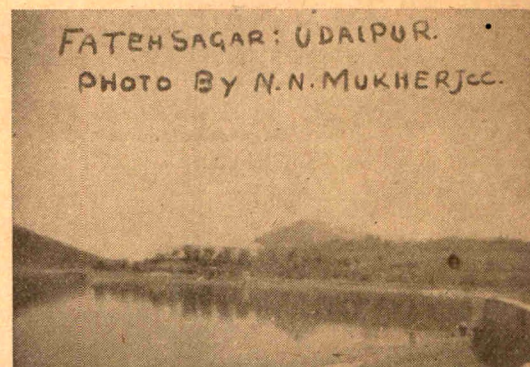 FATEHSAGAR: UDAIPUR.
PHOTO BY N.N. MUKHERJee.